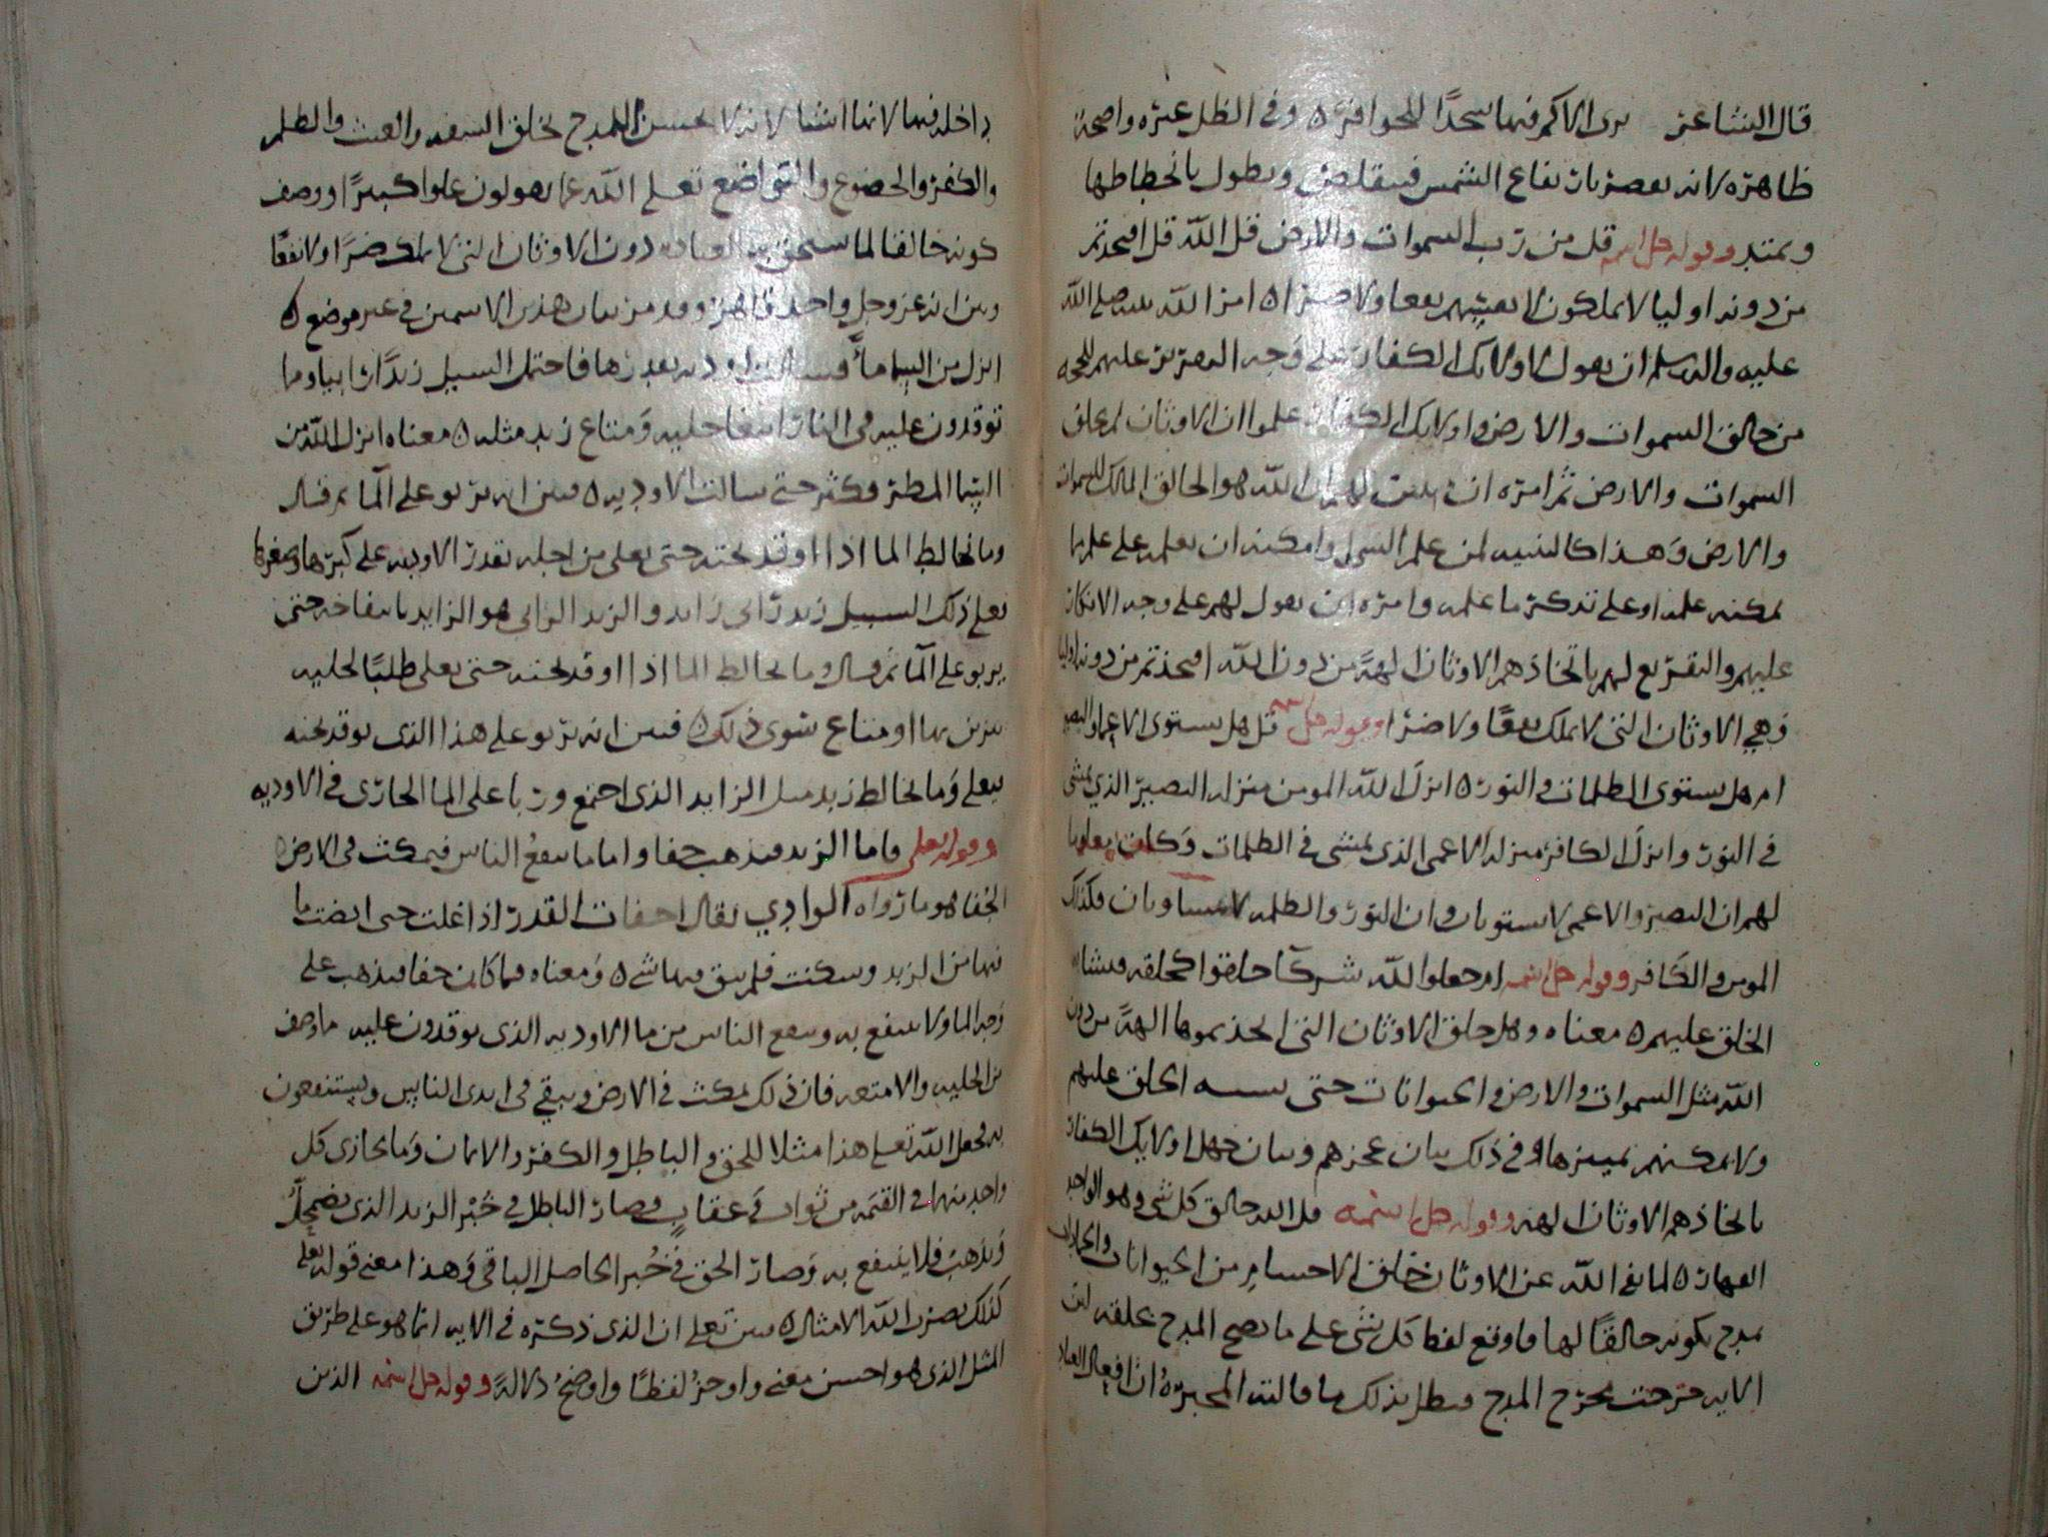 قال الشاعر ترى الاكم فيها سجدًا للحوافر ٥ وفي الظل عبره واضحة
ظاهره لانه يقصر بارتفاع الشمس فيتقلص ويطول بانحطاطها
ويمتد وقوله جل اسمه قل من رب السموات والارض قل الله قل افتخذتم
من دونه اوليا لا يملكون لانفسهم نفعا ولا ضرا ٥ امر الله نبيه صلى الله
عليه واله وسلم ان يقول لاولايك الكفار على وجه التقرير عليهم للحجه
من خالق السموات والارض واولايك الكفار علموا ان الاوثان لم تخلق
السموات والارض ثم امره ان لهم ان الله هو الخالق المالك للسموات
والارض وهذا كالتنبيه لمن علم الشي وامكنه ان يعلمه على علم ما
يمكنه علمه او على تذكر ما علمه وامره ان يقول لهم على وجه الانكار
عليهم والتقريع لهم باتخاذهم الاوثان الهة من دون الله افتخذتم من دونه اوليا
وهي الاوثان التي لا تملك نفعًا ولا ضرا وقوله جل اسمه قل هل يستوى الاعمى والبصير
ام هل يستوى الظلمات والنور ٥ انزل الله المومن منزله البصير الذي يمشى
في النور وانزل الكافر منزله الاعمى الذى يمشى في الظلمات وكان معلوما
لهم ان البصير والاعمى لا يستويان وان النور والظلمه لا يتساويان فكذلك
المومن والكافر وقوله جل اسمه ام جعلوا لله شركا خلقوا كخلقه فتشابه
الخلق عليهم ٥ معناه وهل خلق الاوثان التي اتخذتموها الهة من دون
الله مثل السموات والارض والحيوانات حتى يشتبه الخلق عليهم
ولا يمكنهم تمييزها وفي ذلك بيان عجزهم وبيان جهل اولايك الكفار
باتخاذهم الاوثان الهه وقوله جل اسمه قل الله خالق كل شي وهو الواحد
القهار ٥ لما نفى الله عن الاوثان خلق الاجسام من الحيوانات والجمادات
تمدح بكونه خالقًا لها فاوقع لفظ كل شي على ما يصح المدح بخلقه لان
الايه خرجت مخرج المدح فبطل بذلك ما قالته المجبرة ان افعال العباد
داخله فيها لانها اشيا لانه لا يحسن المدح بخلق السفه والعبث والظلم
والكفر والخضوع والتواضع تعلى الله عما يقولون علوا كبيرًا ووصف
كونه خالقا لما يستحق به العباده دون الاوثان التي لا تملك ضرًا ولا نفعًا
وبين انه عز وجل واحد قاهر وقد مر بيان هذين الاسمين في غير موضع ٥
انزل من السما ماءً فسالت اوديه بقدرها فاحتمل السيل زبدًا رابيا ومما
توقدون عليه في النار ابتغا حليه ومتاع زبد مثله ٥ معناه انزل الله من
السما المطر وكثر حتى سالت الاوديه ٥ فبين انه يربو على الما ثم قال
وما خالط الما اذا اوقد تحته حتى يغلى من اجله بقدر الاوديه على كبرها وصغرها
يعلى ذلك السيل زبد رابى زايد والزبد الرابى هو الزايد بانتفاخه حتى
يربو على الما ثم قال وما خالط الما اذا اوقد تحته حتى يغلى طلبًا لحليه
يتزين بها او متاع سوى ذلك ٥ فبين انه يربو على هذا الذى يوقد تحته
فيغلى وما خالط زبد مثل الزايد الذى اجتمع وربا على الما الجارى في الاوديه
وقوله تعلى فاما الزبد فيذهب جفا واما ما ينفع الناس فيمكث في الارض ٥
الجفا هو ما رواه الوادي يقال اجفات القدر اذا غلت حتى انصبت ما
فيها من الزبد وسكنت فلم يبق فيها شي ٥ ومعناه فما كان جفا فيذهب على
وجه الما ولا ينتفع به وينفع الناس من ما الاوديه الذى يوقدون عليه ما وصف
من الحليه والامتعه فان ذلك يمكث في الارض ويبقي في ايدى الناس ويستنفعون
به فجعل الله تعلى هذا مثلا للحق والباطل والكفر والايمان وما يجازى كل
واحد منهما في القيمه من ثواب وعقاب فصار الباطل في خبر الزبد الذى يضمحل
ويذهب فلا ينتفع به وصار الحق في خبر الحاصل الباقي وهذا معنى قوله تعلى
كذلك يضرب الله الامثال ٥ فبين تعلى ان الذى ذكره في الايه انما هو على طريق
المثل الذى هو احسن معنى واوجز لفظًا واوضح دلالةً وقوله جل اسمه الذين